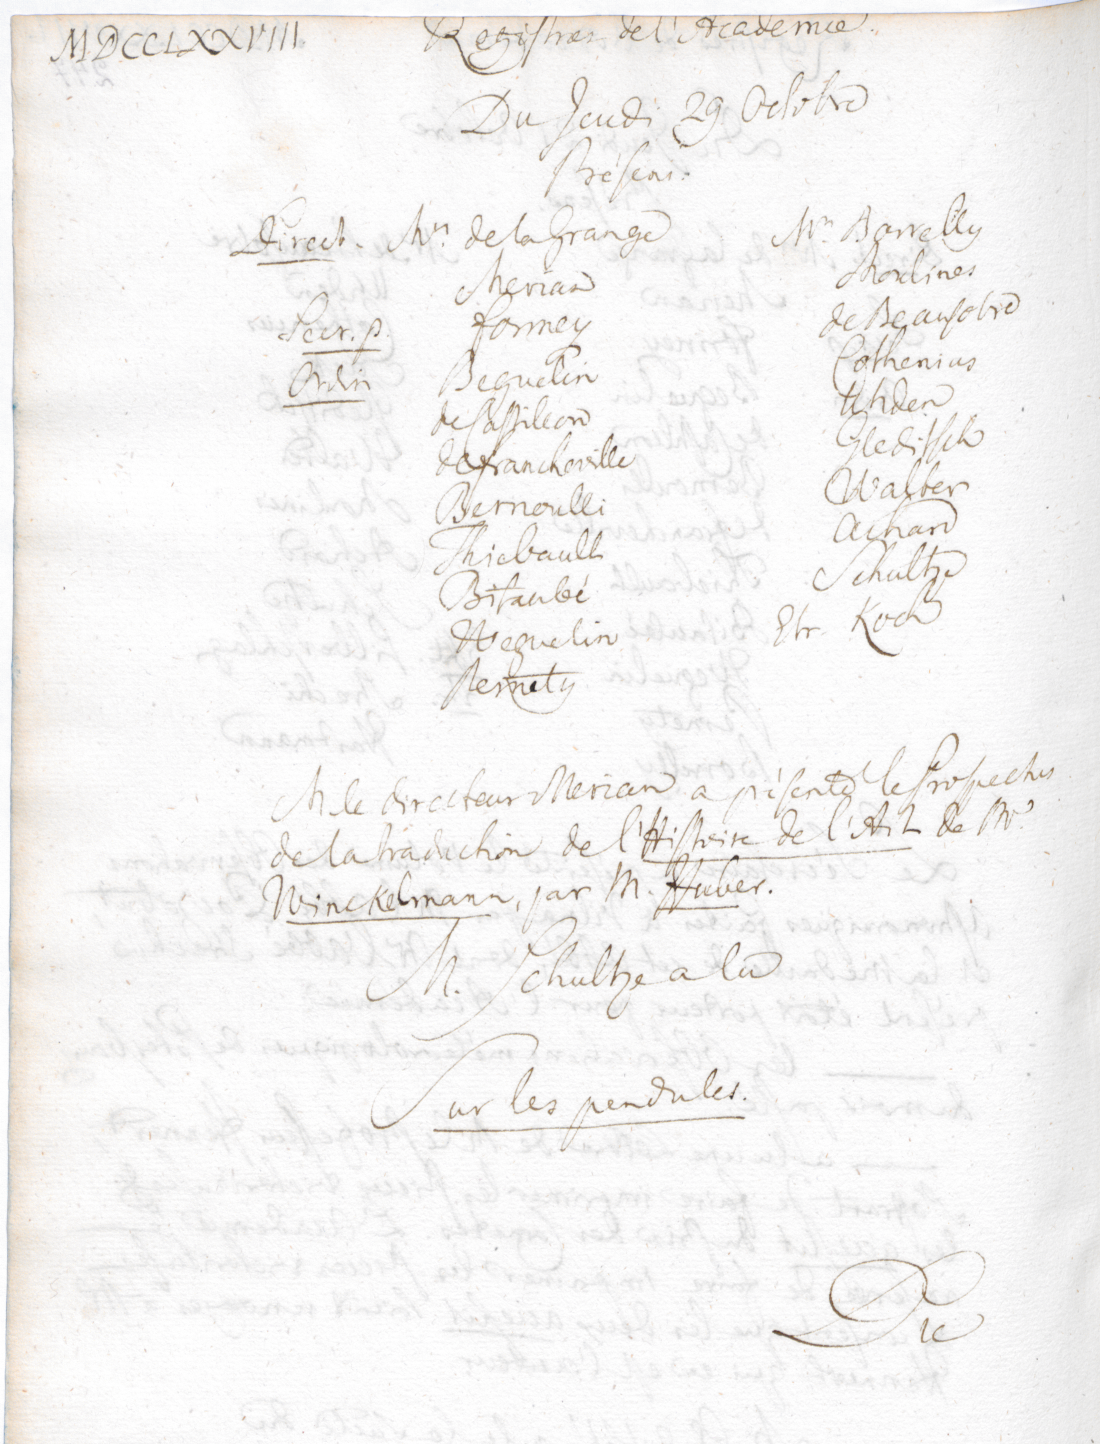 MDCCLXXVIII Registres de l'Academie.
Du Jeudi 29 Octobre
Présens.
Direct. Mrs de la Grange
Merian
Secr. p. Formey
Ordin Beguelin
de Castillon
de Francheville
Bernoulli
Thiebault
Bitaubé
Weguelin
Pernety
Mrs Borrelly
Moulines
de Beausobre
Cothenius
Uhden
Gleditsch
Walter
Achard
Schultze
Etr. Koch
M. le directeur Merian a présenté le Prospectus
de la traduction de l'Histoire de l'Art de Mr.
Winckelmann, par M. Huber.
M. Schultze a lu
Sur les pendules.
Du